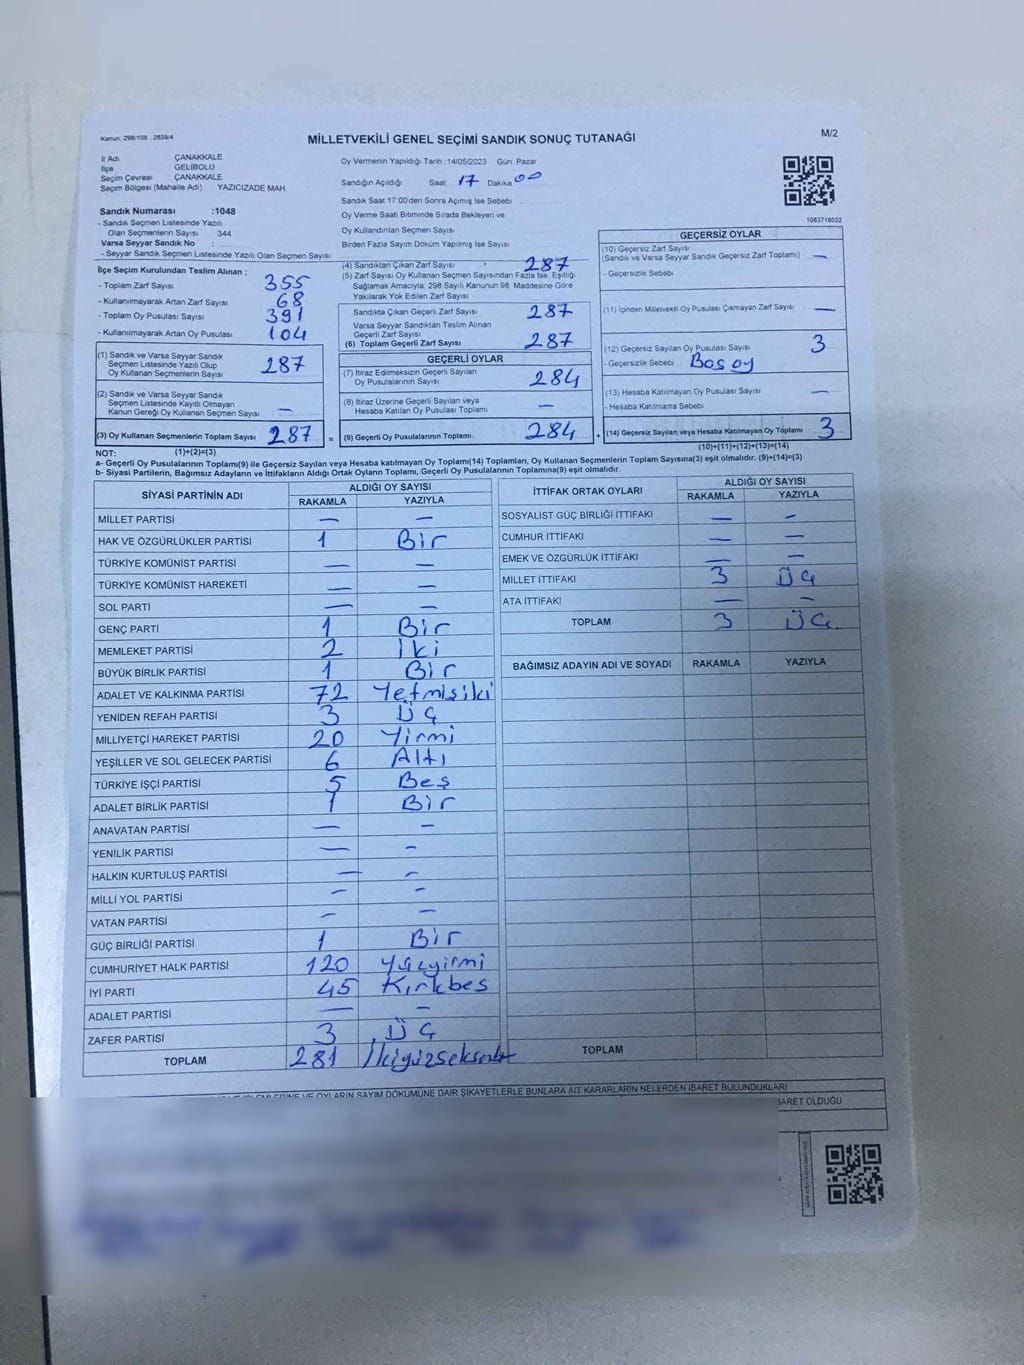 Kanun: 298/105 , 2839/4
MİLLETVEKİLİ GENEL SEÇİMİ SANDIK SONUÇ TUTANAĞI
M/2
İl Adı : ÇANAKKALE
İlçe : GELİBOLU
Seçim Çevresi : ÇANAKKALE
Seçim Bölgesi (Mahalle Adı) : YAZICIZADE MAH
Sandık Numarası :1048
- Sandık Seçmen Listesinde Yazılı
Olan Seçmenlerin Sayısı : 344
Varsa Seyyar Sandık No :
- Seyyar Sandık Seçmen Listesinde Yazılı Olan Seçmen Sayısı
Oy Vermenin Yapıldığı Tarih :14/05/2023 Gün: Pazar
Sandığın Açıldığı Saat: 17 Dakika 00
Sandık Saat 17:00'den Sonra Açımış İse Sebebi
Oy Verme Saati Bitiminde Sırada Bekleyen ve
Oy Kullandırılan Seçmen Sayısı
Birden Fazla Sayım Döküm Yapılmış İse Sayısı
1083718032
İlçe Seçim Kurulundan Teslim Alınan :
- Toplam Zarf Sayısı : 355
- Kullanılmayarak Artan Zarf Sayısı : 68
- Toplam Oy Pusulası Sayısı : 391
- Kullanılmayarak Artan Oy Pusulası : 104
(1) Sandık ve Varsa Seyyar Sandık
Seçmen Listesinde Yazılı Olup
Oy Kullanan Seçmenlerin Sayısı : 287
(2) Sandık ve Varsa Seyyar Sandık
Seçmen Listesinde Kayıtlı Olmayan
Kanun Gereği Oy Kullanan Seçmen Sayısı : —
(3) Oy Kullanan Seçmenlerin Toplam Sayısı : 287 =
(4) Sandıktan Çıkan Zarf Sayısı : 287
(5) Zarf Sayısı Oy Kullanan Seçmen Sayısından Fazla İse, Eşitliği
Sağlamak Amacıyla, 298 Sayılı Kanunun 98. Maddesine Göre
Yakılarak Yok Edilen Zarf Sayısı
Sandıkta Çıkan Geçerli Zarf Sayısı : 287
Varsa Seyyar Sandıktan Teslim Alınan
Geçerli Zarf Sayısı
(6) Toplam Geçerli Zarf Sayısı : 287
GEÇERLİ OYLAR
(7) İtiraz Edilmeksizin Geçerli Sayılan
Oy Pusulalarının Sayısı : 284
(8) İtiraz Üzerine Geçerli Sayılan veya
Hesaba Katılan Oy Pusulası Toplamı : —
(9) Geçerli Oy Pusulalarının Toplamı : 284 +
GEÇERSİZ OYLAR
(10) Geçersiz Zarf Sayısı
(Sandık ve Varsa Seyyar Sandık Geçersiz Zarf Toplamı) : —
- Geçersizlik Sebebi
(11) İçinden Milletvekili Oy Pusulası Çıkmayan Zarf Sayısı : —
(12) Geçersiz Sayılan Oy Pusulası Sayısı : 3
- Geçersizlik Sebebi : Boş oy
(13) Hesaba Katılmayan Oy Pusulası Sayısı : —
- Hesaba Katılmama Sebebi
(14) Geçersiz Sayılan veya Hesaba Katılmayan Oy Toplamı : 3
NOT: (1)+(2)=(3)
(10)+(11)+(12)+(13)=(14)
a- Geçerli Oy Pusulalarının Toplamı(9) ile Geçersiz Sayılan veya Hesaba katılmayan Oy Toplamı(14) Toplamları, Oy Kullanan Seçmenlerin Toplam Sayısına(3) eşit olmalıdır. (9)+(14)=(3)
b- Siyasi Partilerin, Bağımsız Adayların ve İttifakların Aldığı Ortak Oyların Toplamı, Geçerli Oy Pusulalarının Toplamına(9) eşit olmalıdır.
SİYASİ PARTİNİN ADI ALDIĞI OY SAYISI
RAKAMLA YAZIYLA
MİLLET PARTİSİ — —
HAK VE ÖZGÜRLÜKLER PARTİSİ 1 Bir
TÜRKİYE KOMÜNİST PARTİSİ — —
TÜRKİYE KOMÜNİST HAREKETİ — —
SOL PARTİ — —
GENÇ PARTİ 1 Bir
MEMLEKET PARTİSİ 2 İki
BÜYÜK BİRLİK PARTİSİ 1 Bir
ADALET VE KALKINMA PARTİSİ 72 Yetmişiki
YENİDEN REFAH PARTİSİ 3 Üç
MİLLİYETÇİ HAREKET PARTİSİ 20 Yirmi
YEŞİLLER VE SOL GELECEK PARTİSİ 6 Altı
TÜRKİYE İŞÇİ PARTİSİ 5 Beş
ADALET BİRLİK PARTİSİ 1 Bir
ANAVATAN PARTİSİ — —
YENİLİK PARTİSİ — —
HALKIN KURTULUŞ PARTİSİ — —
MİLLİ YOL PARTİSİ — —
VATAN PARTİSİ — —
GÜÇ BİRLİĞİ PARTİSİ 1 Bir
CUMHURİYET HALK PARTİSİ 120 Yüzyirmi
İYİ PARTİ 45 Kırkbeş
ADALET PARTİSİ — —
ZAFER PARTİSİ 3 Üç
TOPLAM 281
İTTİFAK ORTAK OYLARI ALDIĞI OY SAYISI
RAKAMLA YAZIYLA
SOSYALİST GÜÇ BİRLİĞİ İTTİFAKI — —
CUMHUR İTTİFAKI — —
EMEK VE ÖZGÜRLÜK İTTİFAKI — —
MİLLET İTTİFAKI 3 Üç
ATA İTTİFAKI — —
TOPLAM 3 Üç
BAĞIMSIZ ADAYIN ADI VE SOYADI RAKAMLA YAZIYLA
TOPLAM
VE OYLARIN SAYIM DÖKÜMÜNE DAİR ŞİKAYETLERLE BUNLARA AİT KARARLARIN NELERDEN İBARET BULUNDUKLARI
İBARET OLDUĞU